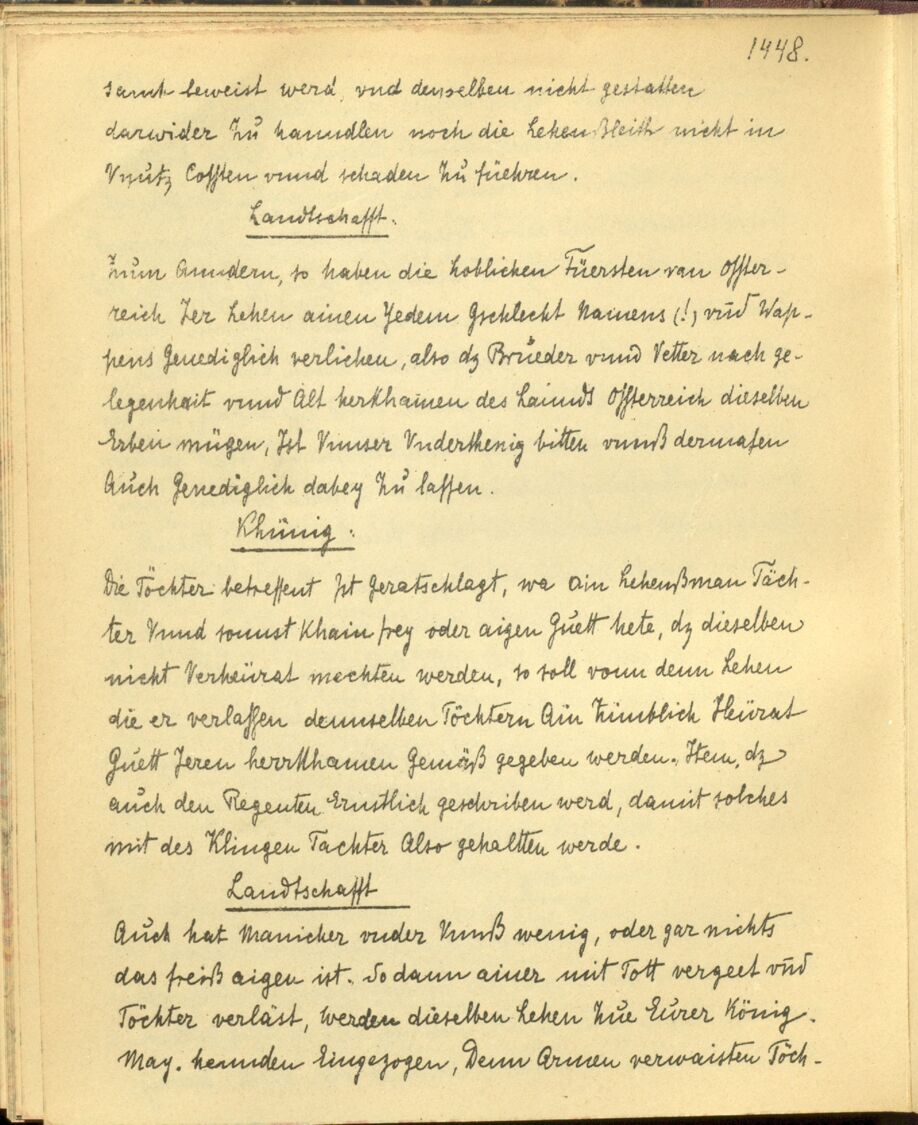 1448.
samt beweist werd vnd denselben nicht gestatten
darwider Zu hanndlen noch die Lehenßleith nicht in
Vnutz Cossten vnnd schaden Zu füehren.
Landtschafft.
Zum Anndern, so haben die Loblichen Füersten von Osster-
reich Jer Lehen ainen Yedem Gschlecht Namens (!) vnd Wap-
pens Genediglich verlichen, also dz Brueder vnnd Vetter nach ge-
legenhait vnnd Alt herkhamen des Lannds Ossterreich dieselben
Erben mügen, Ist Vnnser Vnderthenig bitten vnnß dermasen
Auch Genediglich dabey Zu lassen.
Khünig:
Die Töchter betreffent Ist Geratschlagt, wa ain Lehenßman Töch-
ter Vnnd sonnst Khain frey oder aigen Guett hete, dz dieselben
nicht Verheürat mechten werden, so soll vonn denn Lehen
die er verlassen dennselben Töchtern Ain Zimblich Heürat
Guett Jeren herrkhamen Gemäß gegeben werden. Item, dz
auch den Regenten Ernstlich geschriben werd, damit solches
mit des Klingen Tachter Also gehaltten werde.
Landtschafft
Auch hat Manicher vnder Vnnß wenig, oder gar nichts
das freiß aigen ist. So dann ainer mit Tott vergeet vnd
Töchter verläst, werden dieselben Lehen Zue Eurer König.
May. hennden Eingezogen, Denn Armen verwaisten Töch-